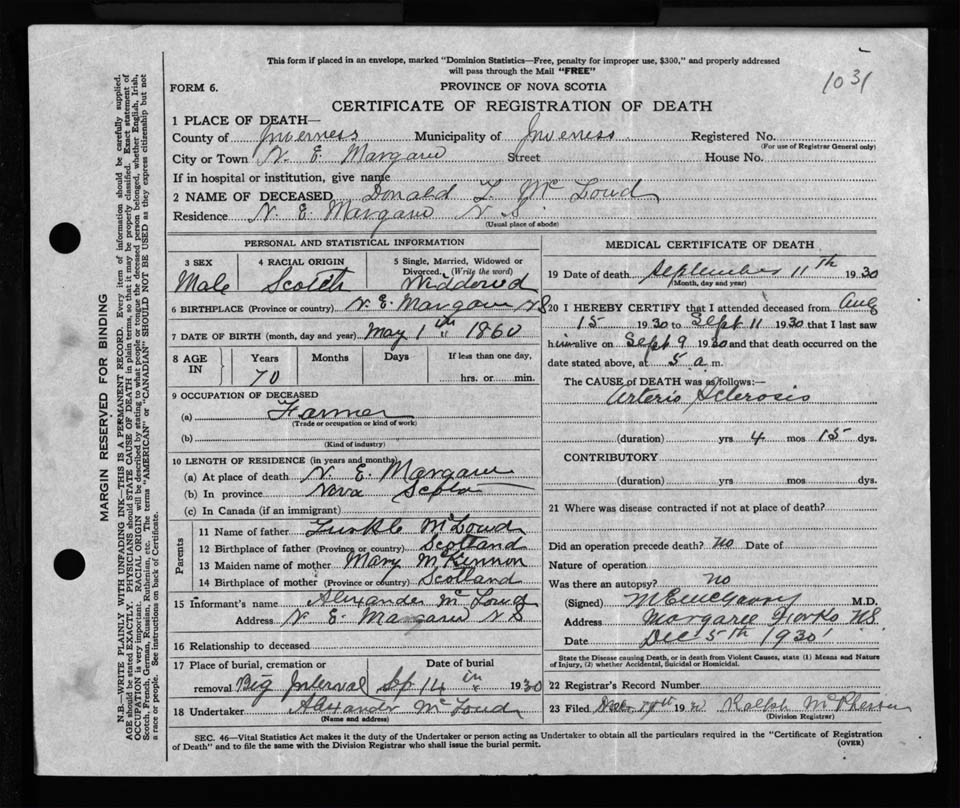 This form if placed in an envelope, marked "Dominion Statistics—Free, penalty for improper use, $300," and properly addressed
will pass through the Mail "FREE"
1031
FORM 6.
PROVINCE OF NOVA SCOTIA
CERTIFICATE OF REGISTRATION OF DEATH
1 PLACE OF DEATH—
County of Inverness Municipality of Inverness Registered No.
(For use of Registrar General only)
City or Town N. E. Margaree Street House No.
If in hospital or institution, give name
2 NAME OF DECEASED Donald L. McLoud
Residence N. E. Margaree N S.
(Usual place of abode)
PERSONAL AND STATISTICAL INFORMATION
3 SEX 4 RACIAL ORIGIN 5 Single, Married, Widowed or
Divorced. (Write the word)
Male Scotch Widdowed
6 BIRTHPLACE (Province or country) N. E. Margaree NS
7 DATE OF BIRTH (month, day and year) May 1th 1860
8 AGE IN Years Months Days If less than one day,
70 hrs. or min.
9 OCCUPATION OF DECEASED
(a) Farmer
(Trade or occupation or kind of work)
(b)
(Kind of industry)
10 LENGTH OF RESIDENCE (in years and months)
(a) At place of death N. E. Margaree
(b) In province Nova Scotia
(c) In Canada (if an immigrant)
Parents
11 Name of father McLoud
12 Birthplace of father (Province or country) Scotland
13 Maiden name of mother Mary McKinnon
14 Birthplace of mother (Province or country) Scotland
15 Informant's name Alexander McLoud
Address N. E. Margaree N S
16 Relationship to deceased
17 Place of burial, cremation or Date of burial
removal Big Interval Sep 14th 1930
18 Undertaker Alexander McLoud
(Name and address)
MEDICAL CERTIFICATE OF DEATH
19 Date of death September 11th 1930
(Month, day and year)
20 I HEREBY CERTIFY that I attended deceased from Aug
15 1930 to Sept 11 1930 that I last saw
him alive on Sept 9 1930 and that death occurred on the
date stated above, at 5 a m.
The CAUSE OF DEATH was as follows:—
Arterio Sclerosis
(duration) yrs 4 mos 15 dys.
CONTRIBUTORY
(duration) yrs. mos. dys.
21 Where was disease contracted if not at place of death?
Did an operation precede death? No Date of
Nature of operation
Was there an autopsy? no
(Signed) M.D.
Address Margaree Forks N.S.
Date Dec 5th 1930
State the Disease causing Death, or in death from Violent Causes, state (1) Means and Nature
of Injury, (2) whether Accidental, Suicidal or Homicidal.
22 Registrar's Record Number
23 Filed 19 Ralph McPherson
(Division Registrar)
SEC. 46—Vital Statistics Act makes it the duty of the Undertaker or person acting as Undertaker to obtain all the particulars required in the "Certificate of Registration
of Death" and to file the same with the Division Registrar who shall issue the burial permit.
(OVER)
MARGIN RESERVED FOR BINDING
N.B.—WRITE PLAINLY WITH UNFADING INK—THIS IS A PERMANENT RECORD. Every item of information should be carefully supplied.
AGE should be stated EXACTLY. PHYSICIANS should STATE CAUSE OF DEATH in plain terms, so that it may be properly classified. Exact statement of
OCCUPATION is very important. RACIAL ORIGIN will be described by stating to what people or tongue the deceased person belonged, whether English, Irish,
Scotch, French, German, Russian, Ruthenian, etc. The terms "AMERICAN" or "CANADIAN" SHOULD NOT BE USED as they express citizenship but not
a race or people. See instructions on back of Certificate.